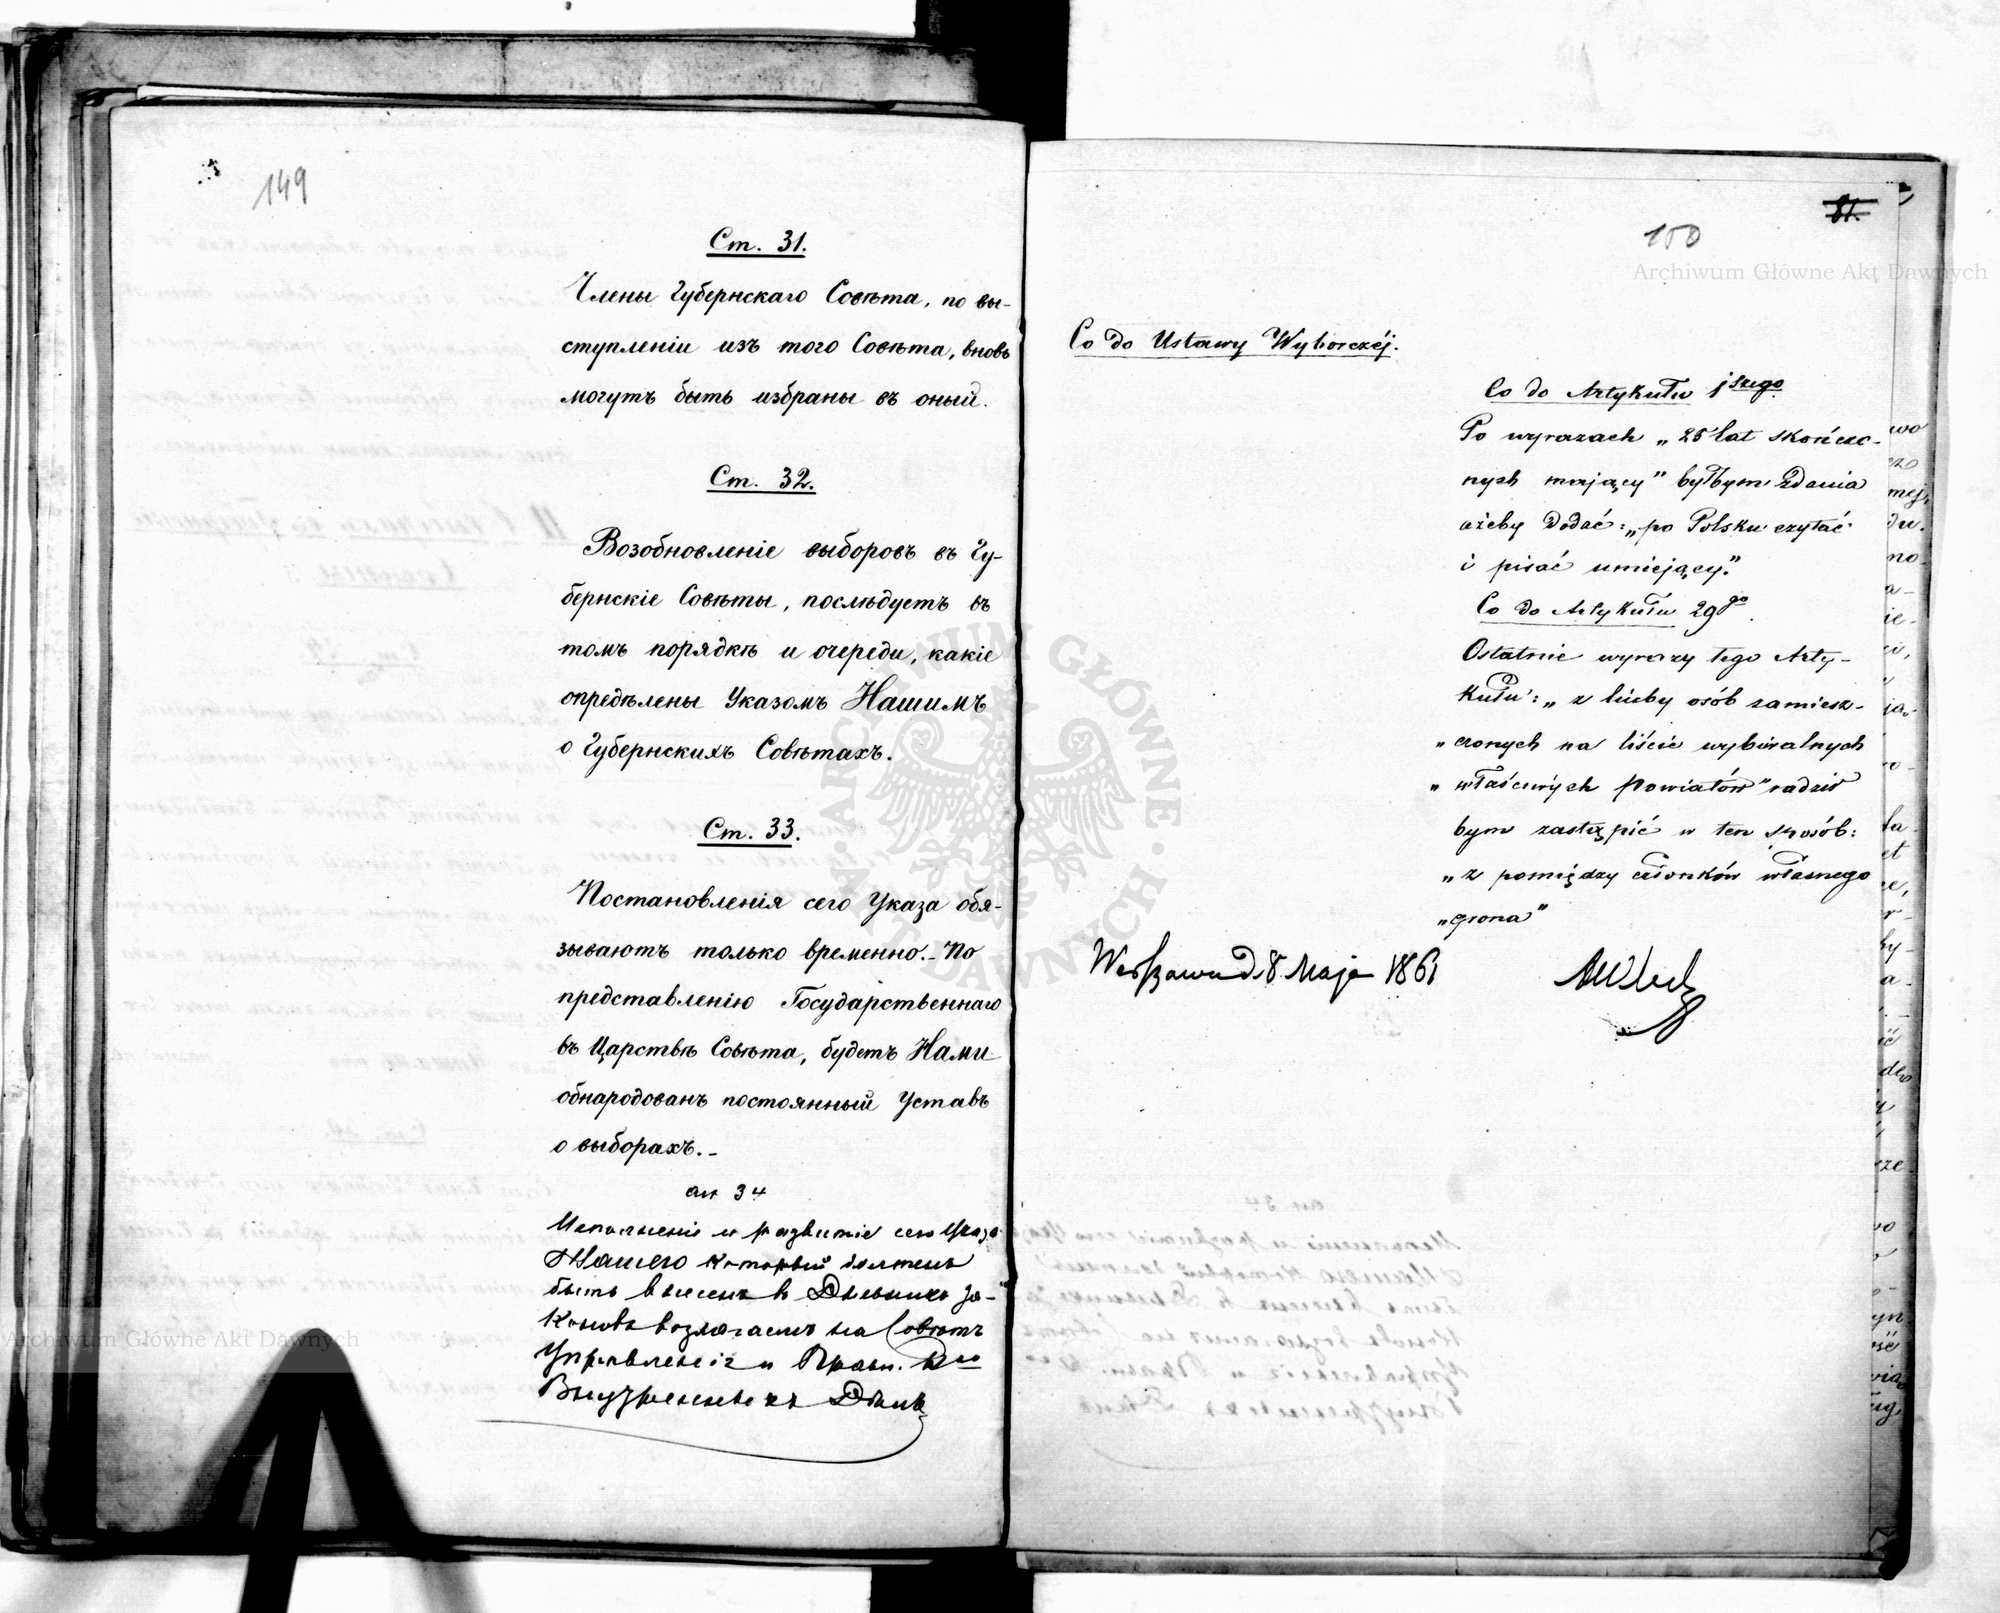 149
Ст. 31.
Члены Губернскаго Совѣта, по вы-
ступленіи изъ того Совѣта, вновь
могутъ быть избраны въ оный.
Ст. 32.
Возобновленіе выборовъ въ Гу-
бернскіе Совѣты, послѣдуетъ въ
томъ порядкѣ и очереди, какіе
опредѣлены Указомъ Нашимъ
о Губернскихъ Совѣтахъ.
Ст. 33.
Постановленія сего Указа обя-
зываютъ только временно.- По
представленію Государственнаго
въ Царствѣ Совѣта, будетъ Нами
обнародованъ постоянный Уставъ
о выборахъ.-
34
и развитіе сего Указа
Нашего который долженъ
быть въ Дневникъ За-
коновъ возлагаемъ на Совѣтъ
Управленія и Прав. Ком
Внутреннихъ Дѣлъ
81.
150
Co do Ustawy Wyborczéj.
Co do Artykułu 1szego
Po wyrazach „25 lat skończo-
nych mający” byłbym zdania
ażeby dodać: „po Polsku czytać
i pisać umiejący.”
Co do Artykułu 29go.
Ostatnie wyrazy tego Arty-
kułu: „z liczby osób zamiesz-
„czonych na liście wybieralnych
„właściwych Powiatów” radził
bym zastąpić w ten sposób:
„z pomiędzy członków własnego
„grona”
Warszawa d. 8 Maja 1861
wo
czo
mej,
du.
no-
a-
ie-
ja-
ro-
la
et
r-
by-
a-
ić
dla
cze-
wo
yn-
Archiwum Główne Akt Dawnych
Archiwum Główne Akt Dawnych
ARCHIWUM GŁÓWNE · AKT DAWNYCH ·